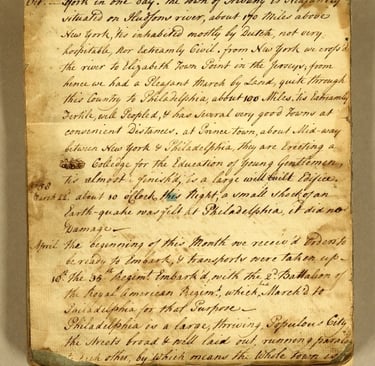 York in one day. The town of Albany is Pleasantly
situated on Hudsons river, about 170 Miles above
New York, tis inhabited mostly by Dutch, not very
hospitable, nor extreamly Civil. from New York we cross'd
the river to Elizabeth Town Point in the Jerseys, from
hence we had a Pleasant March by Land, quite through
this Country to Philadelphia, about 100 Miles. tis Extreamly
Fertile, well Peopled, & has several very good Towns at
convenient Distances. at Prince town, about Mid-way
between New York & Philadelphia, they are Erecting a
Colledge for the Education of Young Gentlemen,
tis almost finish'd, is a large well built Edifice.
22 about 10 o'Clock this Night, a small shock of an
Earth-quake was felt at Philadelphia, it did no
Damage
April The beginning of this Month we receiv'd Orders to
be ready to Embark, & transports were taken up
10th the 35th Regimt Embark'd with the 2d Battalion of
the Royal American Regimt, which March'd to
Philadelphia for that Purpose
Philadelphia is a large, thriving, Populous City,
the streets broad & well laid out, running
each other, by Which means the Whole town is